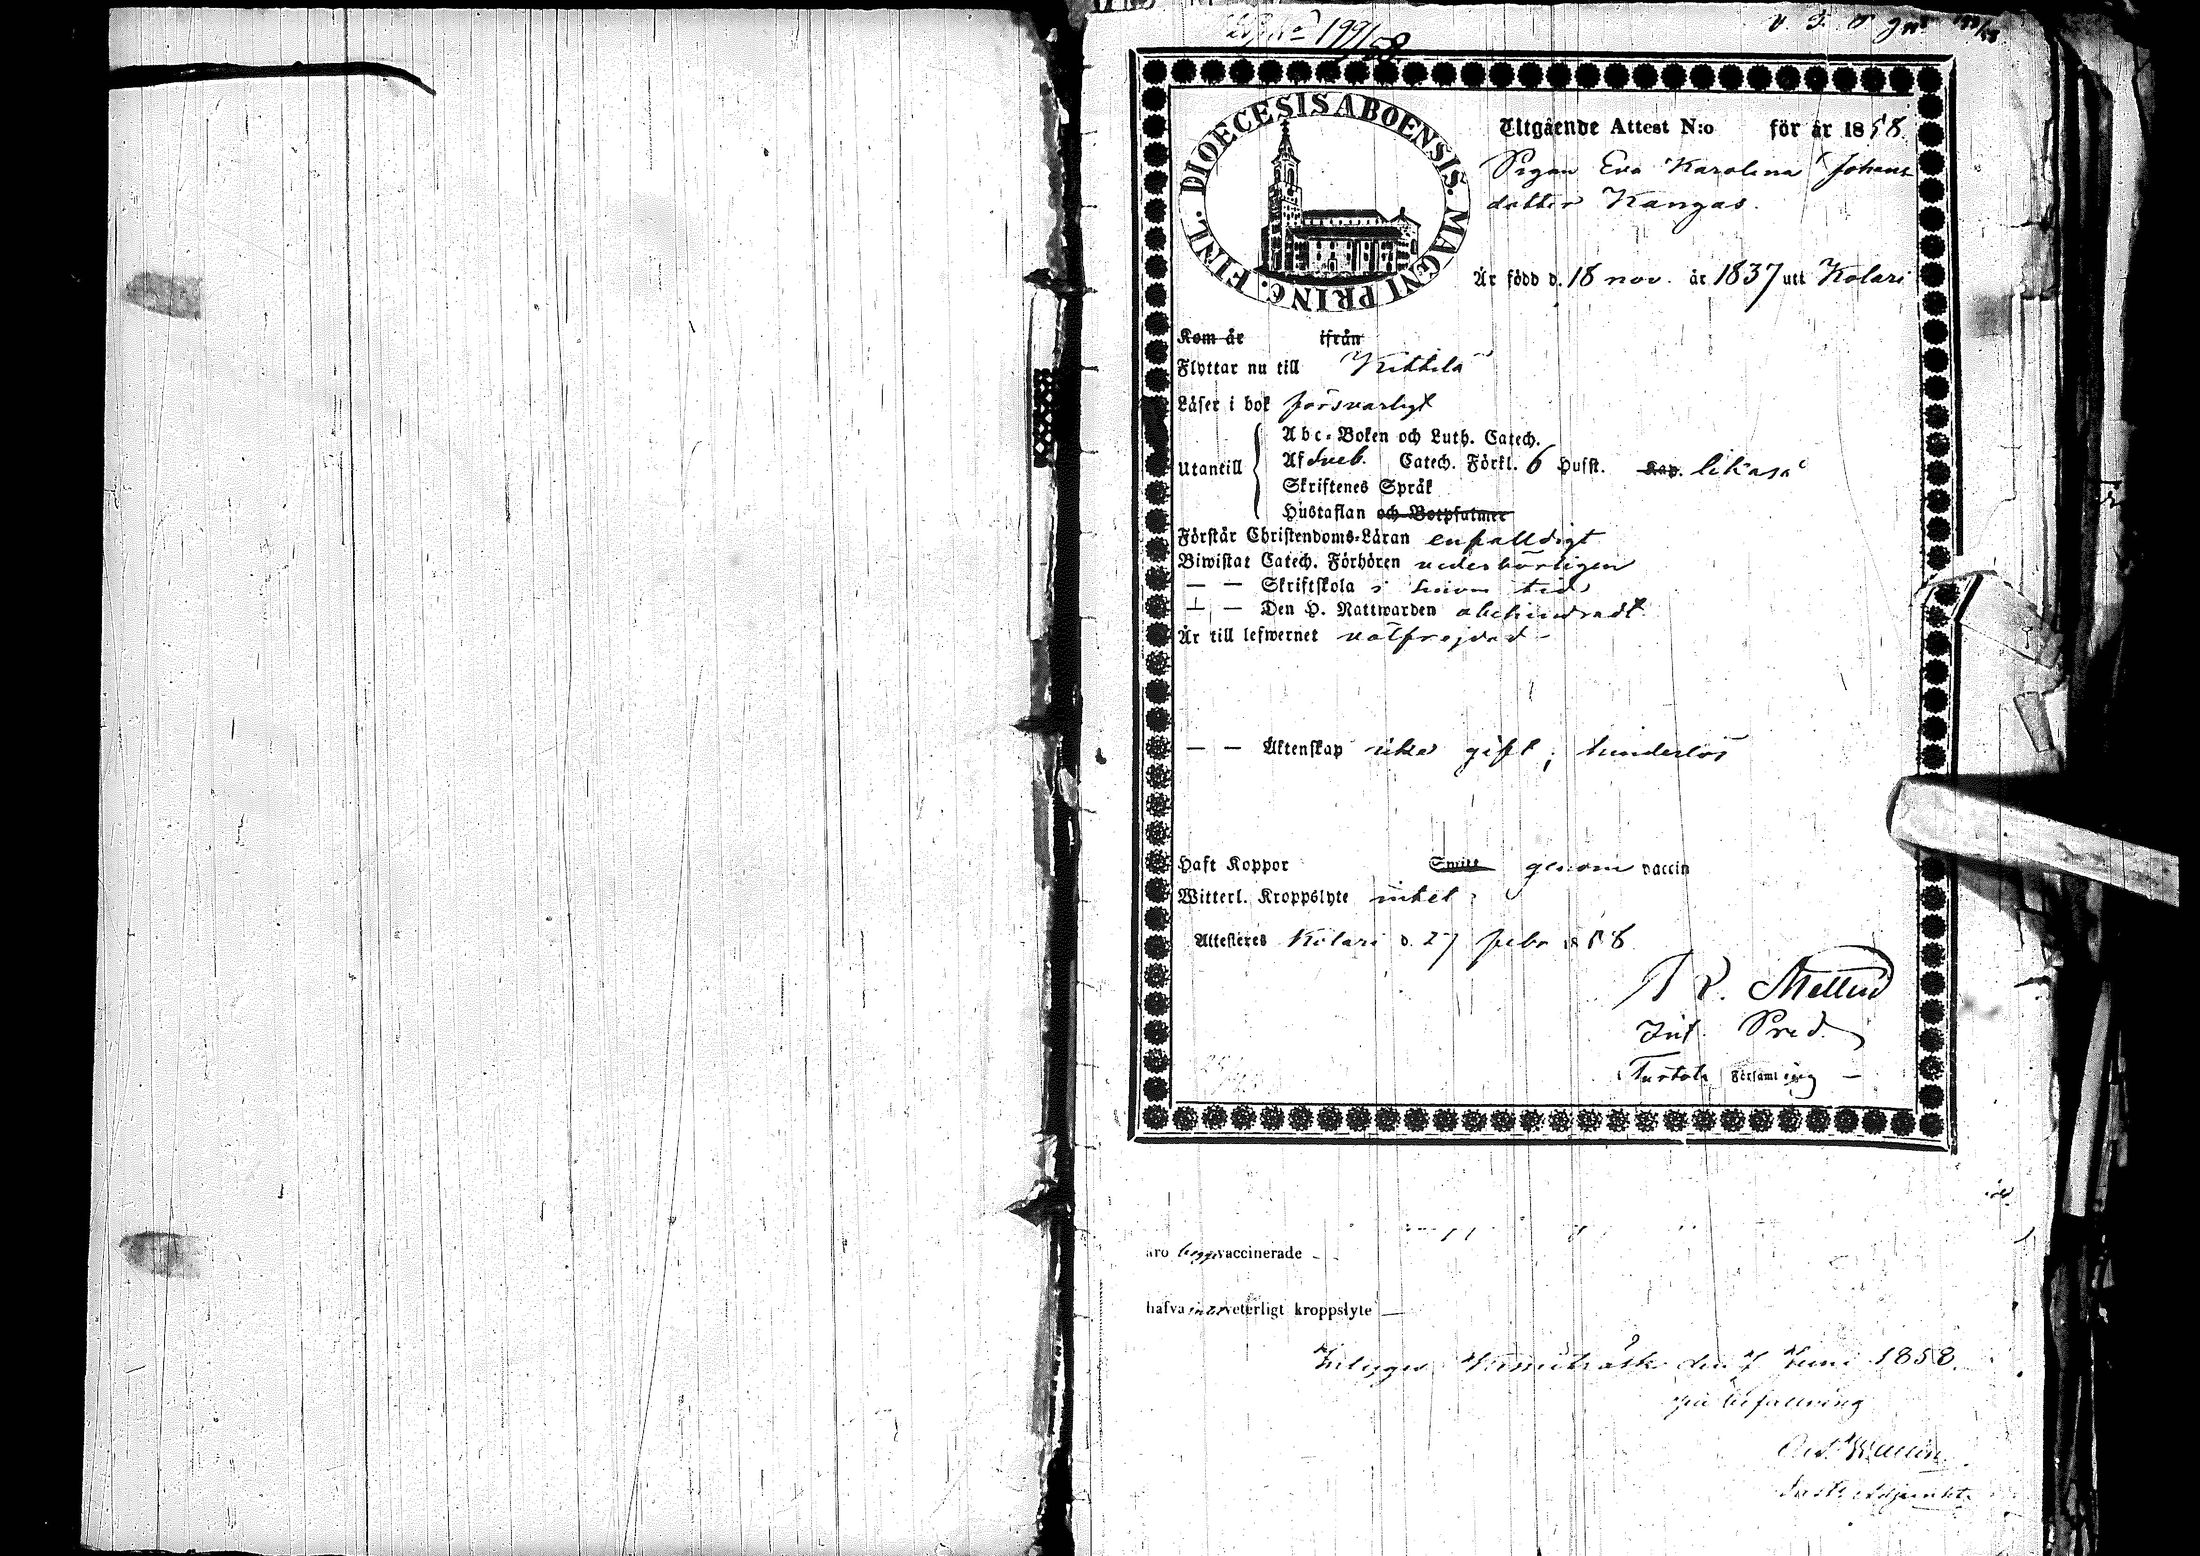 199/58
DIOECESIS ABOENSIS. MAGNI PRINC. FINL.
Utgående Attest N:o för år 1858
Pigan Eva Karolina Johans
dotter Kangas.
Är född d. 18 nov. år 1837 uti Kolari
Kom år ifrån
Flyttar nu till Kittilä
Läser i bok försvarligt
Abc-Boken och Luth. Catech.
Utantill Af Sveb. Catech. Förkl. 6 Hufst. Kap. likaså
Skriftenes Språk
Hustaflan och Botpsalmer
Förstår Christendoms-Läran enfalldigt
Biwistat Catech. Förhören vederbörligen
— — Skriftskola i sinom tid
— — Den H. Nattwarden obehindradt
Är till lefwernet välfrejdad -
— — Äktenskap icke gift,
Haft Koppor Switt genom vaccin
Witterl. Kroppslyte intet
Attesteres Kolari d. 27 febr 1858
Int. Pred.
i Turtola Församling —
äro vaccinerade
hafva veterligt kroppslyte —
Kemiträsk den 7 Juni 1858.
på befallning